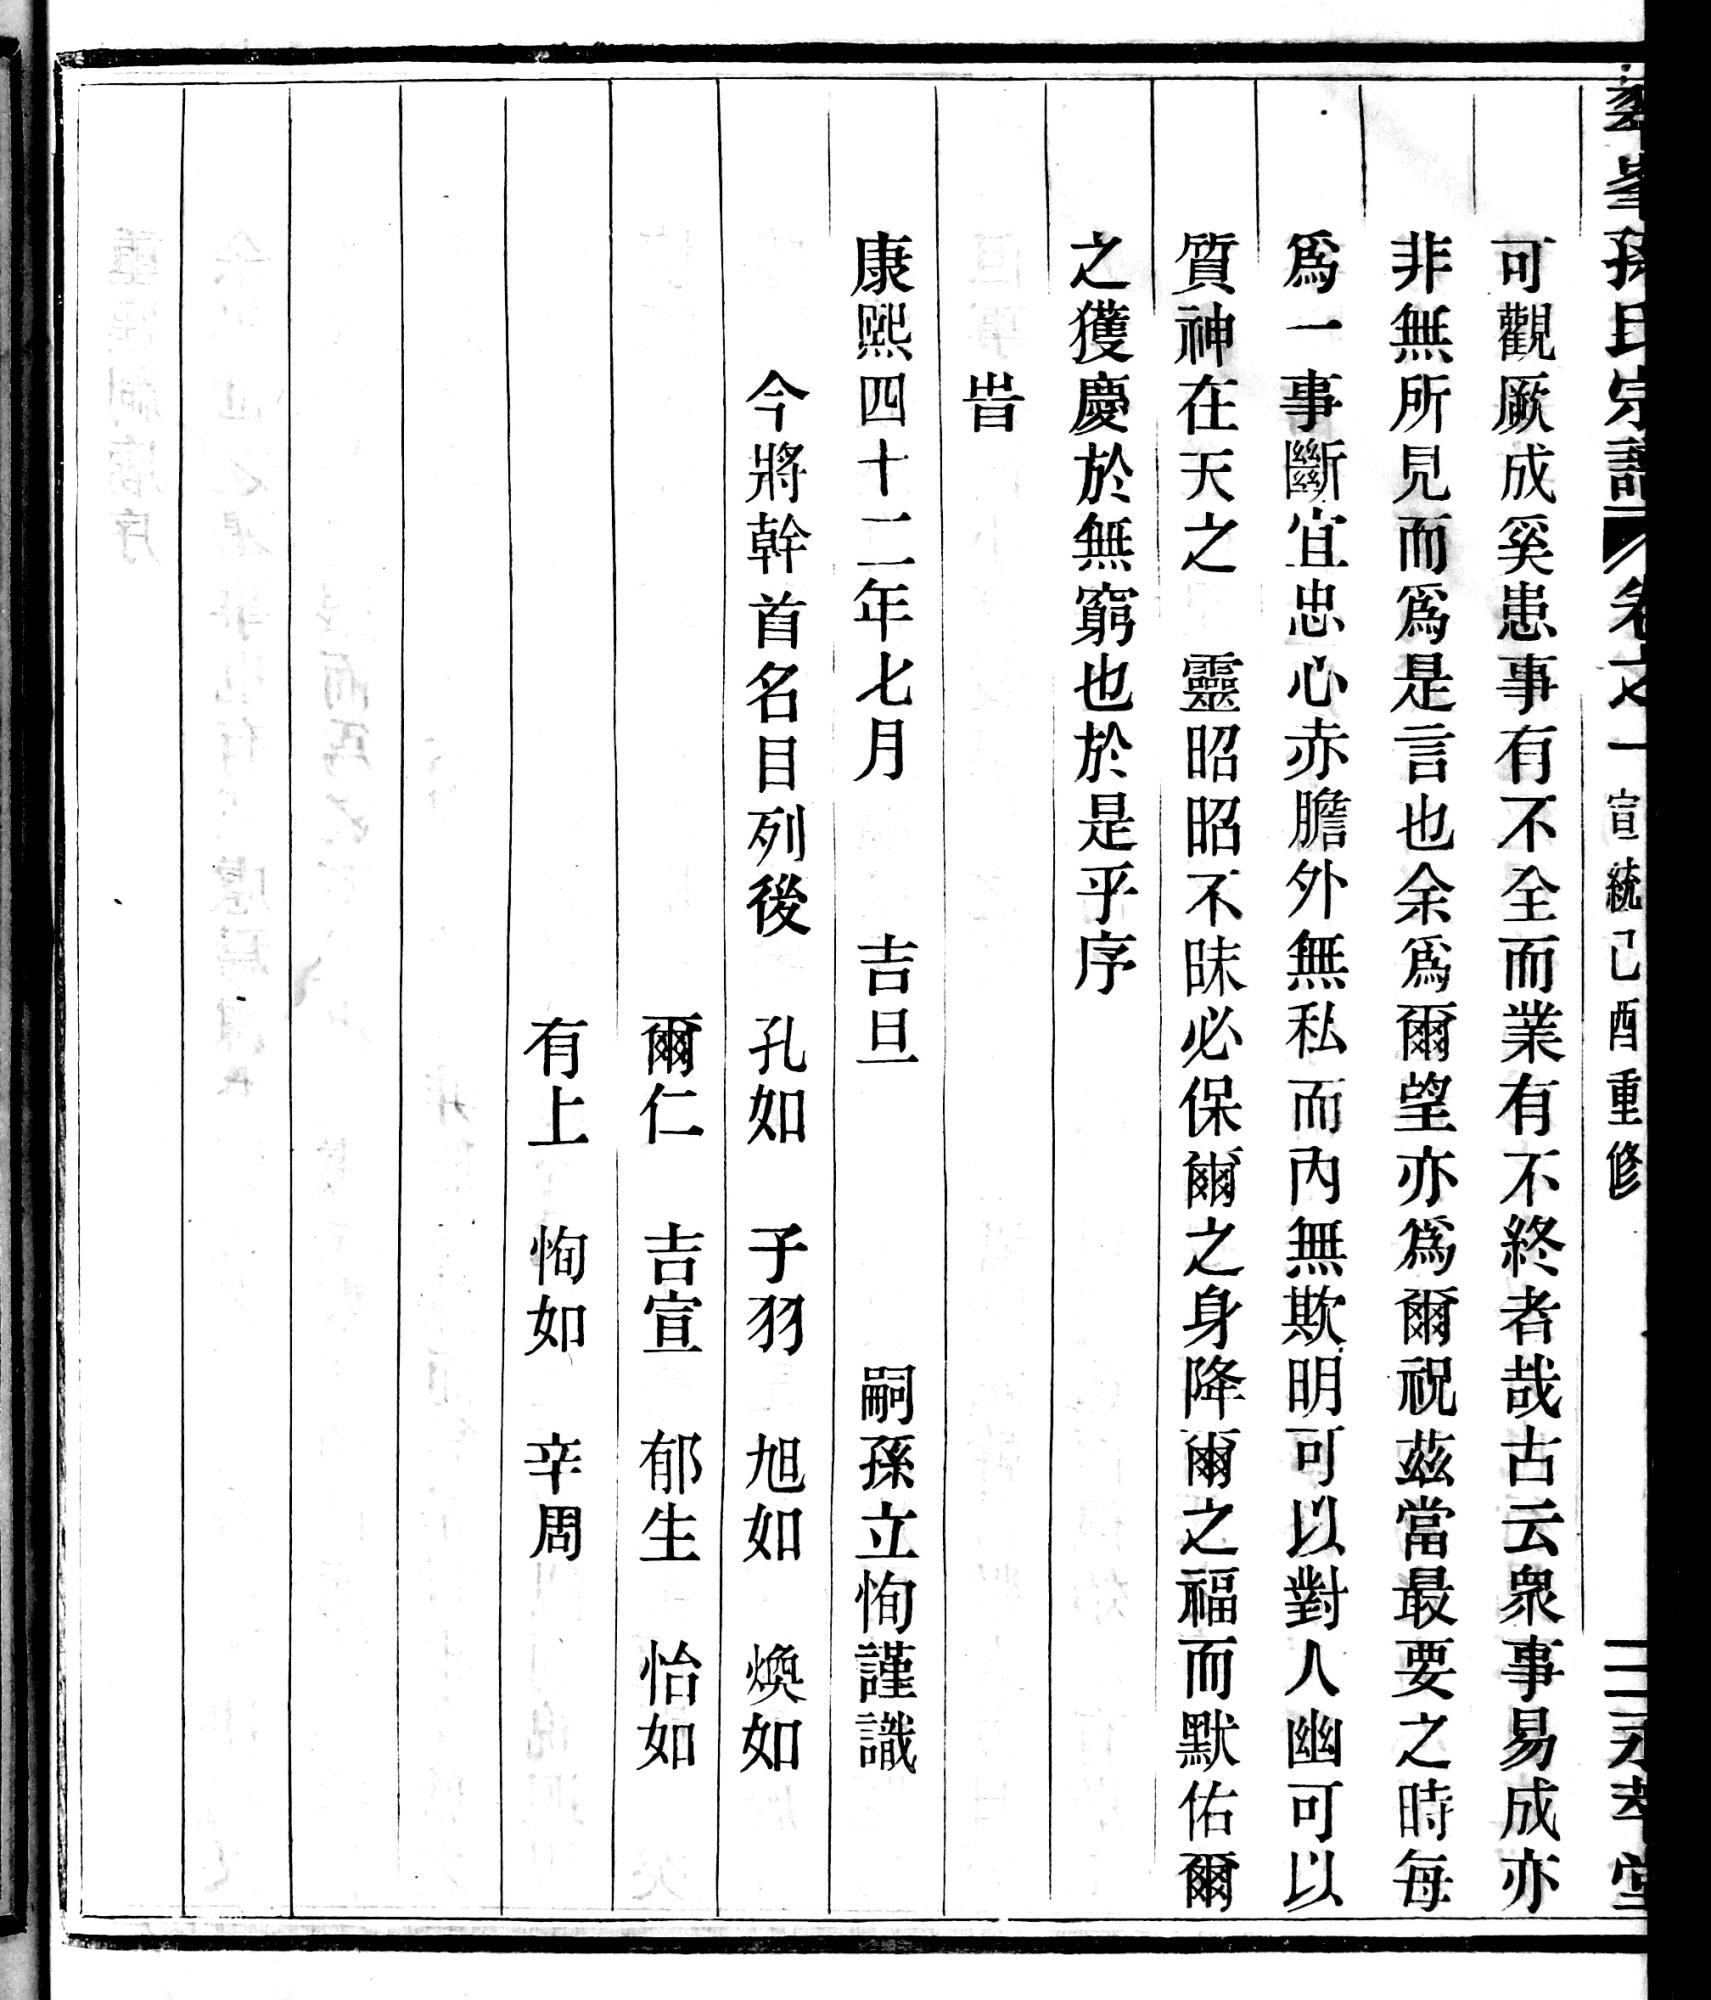 峯孫氏宗譜 卷之一 宣統己酉重修 二 堂
可觀厥成奚患事有不全而業有不終者哉古云衆事易成亦
非無所見而爲是言也余爲爾望亦爲爾祝茲當最要之時每
爲一事斷宜忠心赤膽外無私而內無欺明可以對人幽可以
質神在天之 靈昭昭不昧必保爾之身降爾之福而默佑爾
之獲慶於無窮也於是乎序
旹
康熙四十二年七月 吉旦 嗣孫立恂謹識
今將幹首名目列後 孔如 子羽 旭如 煥如
爾仁 吉宣 郁生 怡如
有上 恂如 辛周